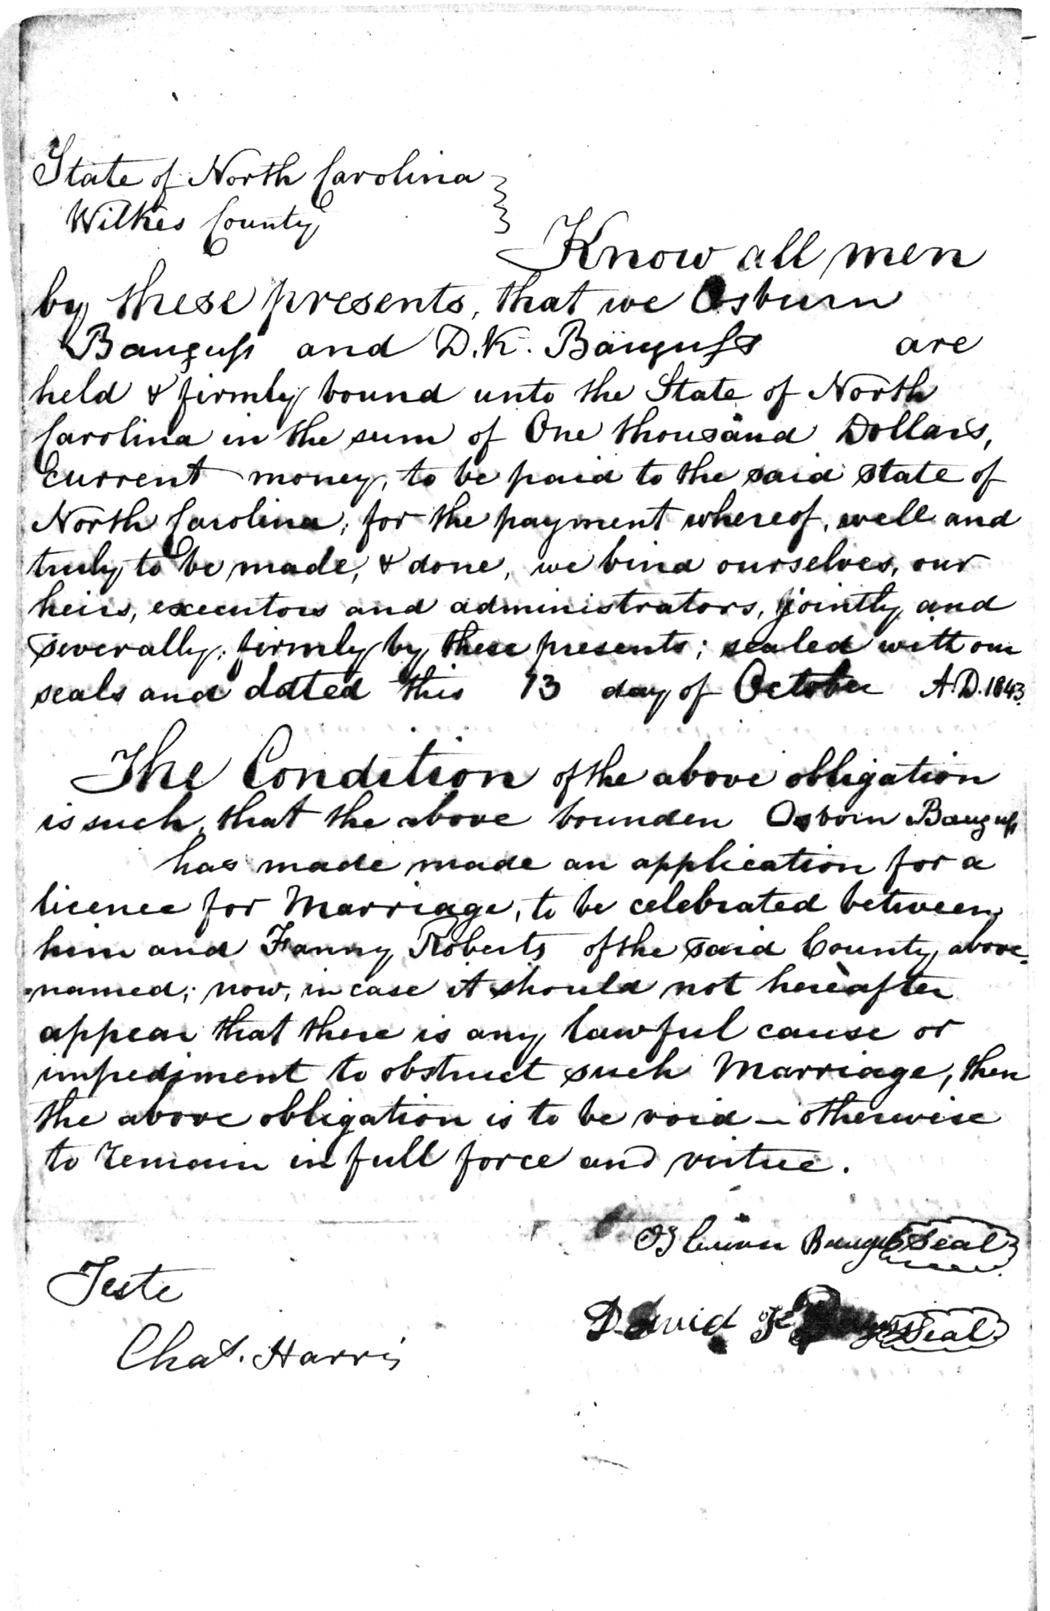 State of North Carolina
Wilkes County
Know all men
by these presents, that we Osburn
Bauguss and D. K. Bauguss are
held & firmly bound unto the State of North
Carolina in the sum of One thousand Dollars,
Current money, to be paid to the said state of
North Carolina, for the payment whereof, well and
truly to be made, & done, we bind ourselves, our
heirs, executors and administrators, jointly and
severally, firmly by these presents; sealed with our
seals and dated this 13 day of October A.D. 1843.
The Condition of the above obligation
is such, that the above bounden Osborn Bauguss
has made made an application for a
licence for Marriage, to be celebrated between
him and Fanny Roberts of the said County above
named; now, in case it should not hereafter
appear that there is any lawful cause or
impediment to obstruct such Marriage, then
the above obligation is to be void - otherwise
to remain in full force and virtue.
Baugus Seal
Teste
David Seal
Chas. Harris